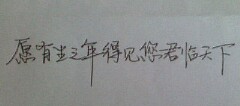 愿有生之年得见您君临天下